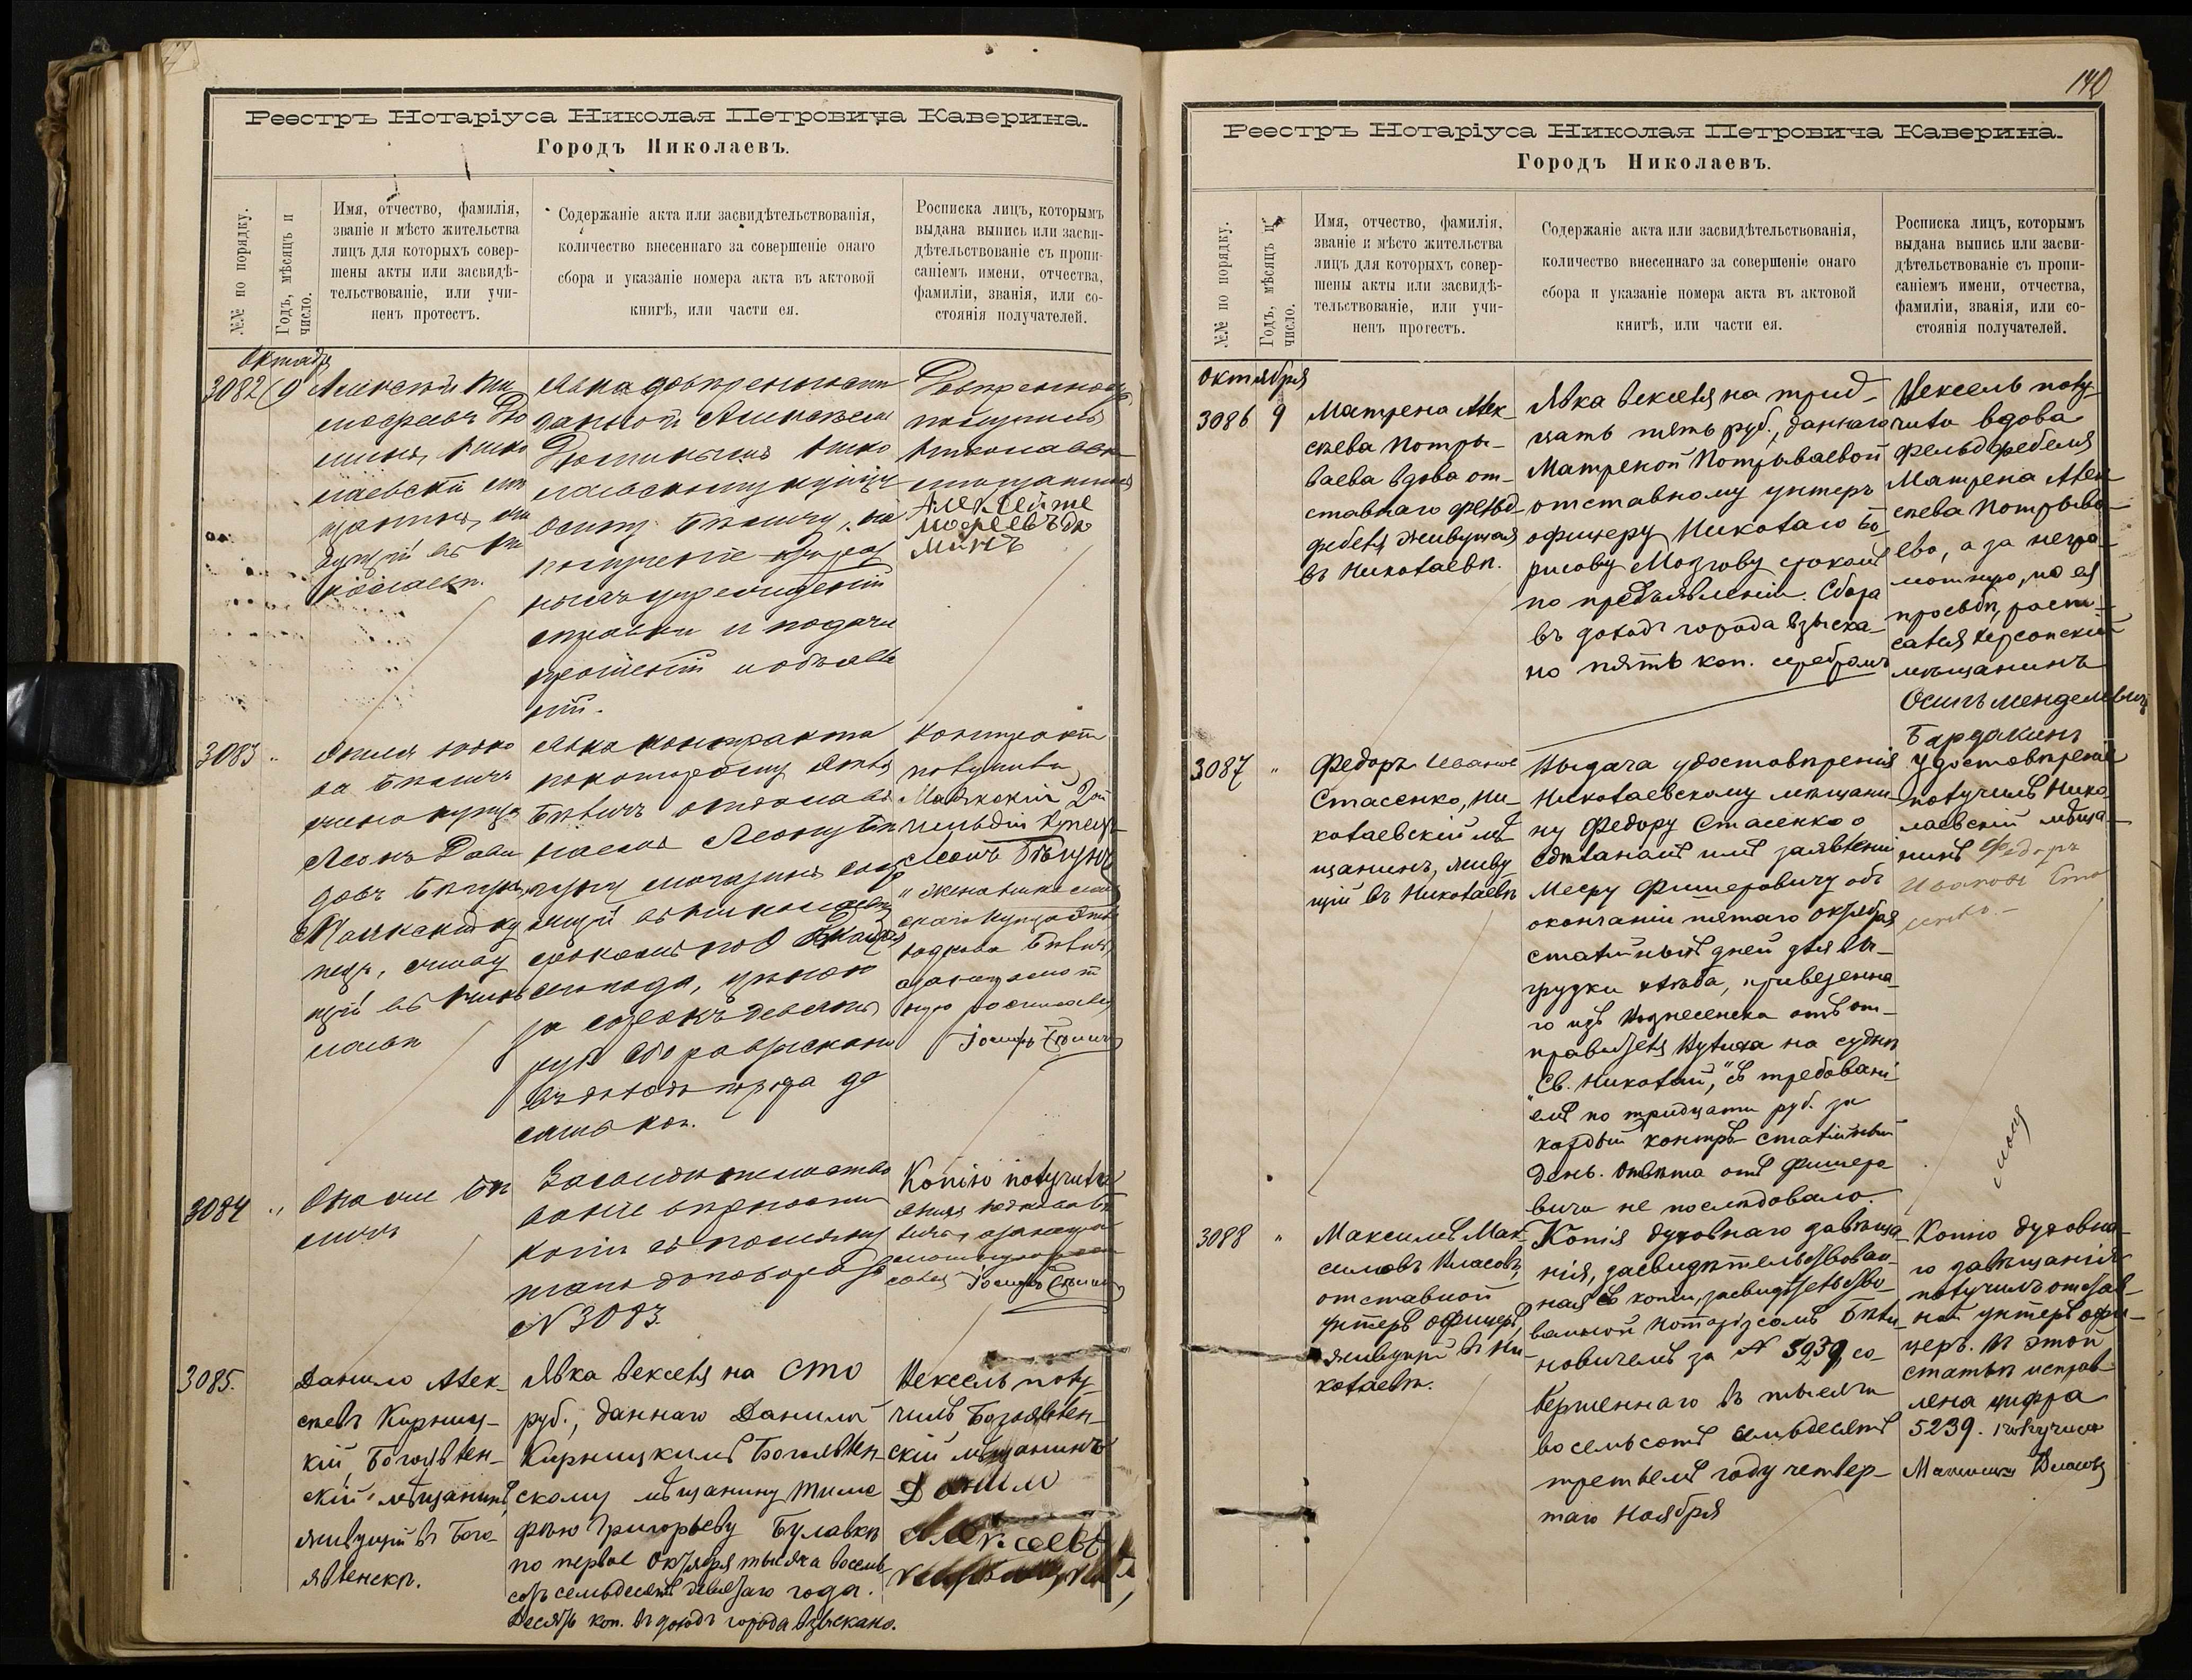 Реестръ Нотаріуса Николая Петровича Каверина.
Городъ Николаевъ.
№№ по порядку.
Годъ, мѣсяцъ и
число.
Имя, отчество, фамилія,
званіе и мѣсто жительства
лицъ для которыхъ совер-
шены акты или засвидѣ-
тельствованіе, или учи-
ненъ протестъ.
Содержаніе акта или засвидѣтельствованія,
количество внесеннаго за совершеніе онаго
сбора и указаніе номера акта въ актовой
книгѣ, или части ея.
Росписка лицъ, которымъ
выдана выпись или засви-
дѣтельствованіе съ пропи-
саніемъ имени, отчества,
фамиліи, званія, или со-
стоянія получателей.
Октября
3082 9
Алексѣй Ти
мофеевъ
Нико
лаевскій мѣ
щанинъ, жи
вущій въ Ни
колаевѣ.
Явка довѣренности
данной Алексѣемъ
Нико
лаевскому купцу
Осипу Бѣличу, на
полученіе изъ раз
ныхъ учрежденій
справки и подачи
прошеній и объявле
ній.
Довѣренность
получилъ
Николаевск
мѣщанинъ
Алексей Ти
мофеевъ
3083 "
Бѣличъ
жена купца
Леонъ Дави
довъ
купецъ, живу
щій въ Нико
лаевѣ
Явка контракта
по которому
Бѣличъ отдала въ
наемъ Леону
лавку магазинъ сос
щій въ Николаевѣ
срокомъ по
года, цѣною
за сорокъ девять
руб. Сбора взыскано
въ доходъ города де
сять коп.
Контрактъ
получили
2й
гильдіи купецъ
Леонъ
и жена Николаев
скаго купца
Бѣличъ
а за неграмот
ную росписался
Іосифъ Бѣличъ
3084 "
Она же Бѣ
личъ
Засвидѣтельство
ваніе вѣрности
копіи съ помяну
таго договора за
№ 3083.
Копію получила
Бѣ
личъ, а за негра
мотную роспи
сался Іосифъ Бѣличъ
3085.
Данило Алек-
сѣевъ Кирниц-
кій, Богоявлен-
скій мѣщанинъ,
живущій въ Бого-
явленскѣ.
Явка векселя на сто
руб., даннаго Данилой
Кирницкимъ Богоявлен-
скому мѣщанину Тимо
фѣю Григорьеву Булавкѣ
по первое Октября тысяча восемь
сотъ семьдесятъ девятаго года.
Десять коп. въ доходъ города взыскано.
Вексель полу
чилъ Богоявлен-
скій мѣщанинъ
Данило
Алексеевъ
140
Реестръ Нотаріуса Николая Петровича Каверина.
Городъ Николаевъ.
№№ по порядку.
Годъ, мѣсяцъ и
число.
Имя, отчество, фамилія,
званіе и мѣсто жительства
лицъ для которыхъ совер-
шены акты или засвидѣ-
тельствованіе, или учи-
ненъ протестъ.
Содержаніе акта или засвидѣтельствованія,
количество внесеннаго за совершеніе онаго
сбора и указаніе номера акта въ актовой
книгѣ, или части ея.
Росписка лицъ, которымъ
выдана выпись или засви-
дѣтельствованіе съ пропи-
саніемъ имени, отчества,
фамиліи, званія, или со-
стоянія получателей.
Октября
3086 9
Матрена Алек-
сѣева Потры-
ваева вдова от-
ставнаго фельд-
фебеля живущая
въ Николаевѣ.
Явка векселя на трид-
цать пять руб., даннаго
Матреной Потрываевой
отставному унтеръ
офицеру Николаю Бо-
рисову Мозгову срокомъ
по предъявленіи. Сбора
въ доходъ города взыска-
но пять коп. серебромъ
Вексель полу-
чила вдова
фельдфебеля
Матрена Алек-
сѣева Потрыва-
ева, а за негра-
мотную, по ея
просьбѣ, роспи-
сался Херсонскій
мѣщанинъ
Осипъ Менделевичъ
Бардакинъ
3087 "
Федоръ Ивановъ
Стасенко, Ни-
колаевскій мѣ-
щанинъ, живу
щій въ Николаевѣ
Выдача удостовѣренія
Николаевскому мѣщани-
ну Федору Стасенко о
сдѣланномъ имъ заявленіи
Мееру Фишеровичу объ
окончаніи пятаго Октября
сталійныхъ дней для вы-
грузки хлѣба, привезенна-
го изъ Вознесенска отъ от-
правителя на суднѣ
"Св. Николай", съ требовані-
емъ по тридцати руб. за
каждый контръ-сталійный
день. Отвѣта отъ Фишеро
вича не послѣдовало.
Удостовѣреніе
получилъ Нико
лаевскій мѣща-
нинъ Федоръ
Ивановъ Ста
сенко.
3088 "
Максимъ Мак-
симовъ Власовъ,
отставной
унтеръ офицеръ,
живущій въ Ни-
колаевѣ.
Копія духовнаго завѣща-
нія, засвидѣтельствован-
ная съ копіи, засвидѣтельство-
ванной Нотаріусомъ
за № 5239, со-
вершеннаго въ тысяча
восемьсотъ семьдесятъ
третьемъ году четвер-
таго Ноября
Копію духовна-
го завѣщанія
получилъ отстав-
ной унтеръ офи-
церъ. Въ этой
статьѣ исправ-
лена цифра
5239. получилъ
Максимъ Власовъ